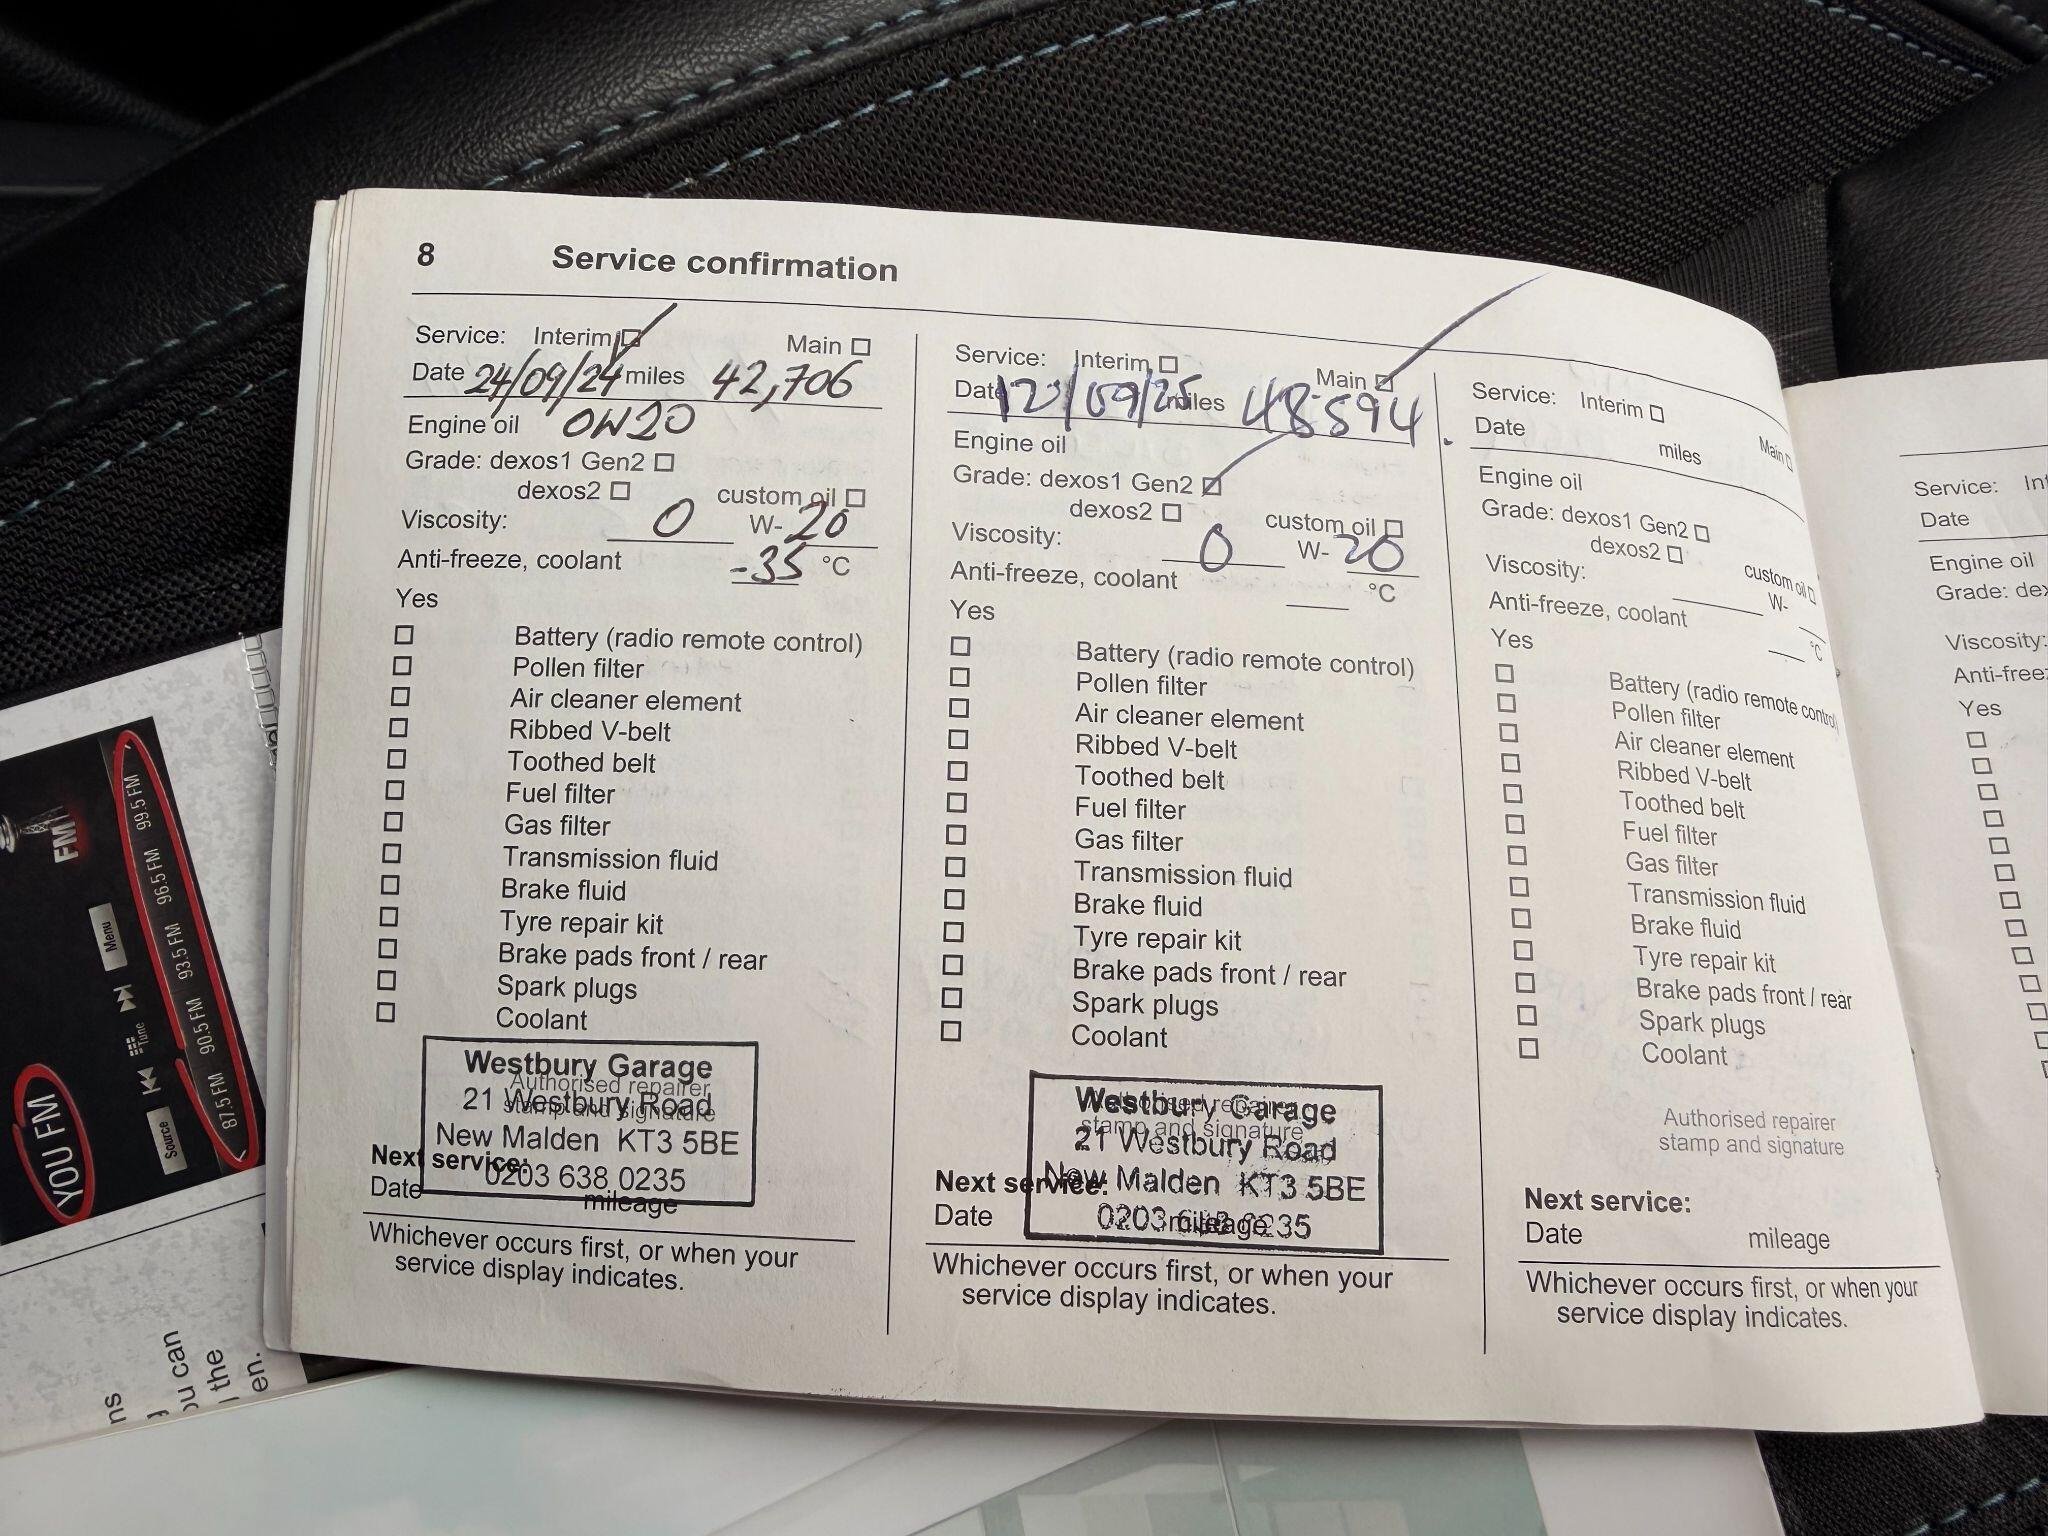 8 Service confirmation
Service: Interim Main
Date 24/09/24 miles 42,706
Engine oil 0W20
Grade: dexos1 Gen2
dexos2 custom oil
Viscosity: 0 W- 20
Anti-freeze, coolant -35 °C
Yes
Battery (radio remote control)
Pollen filter
Air cleaner element
Ribbed V-belt
Toothed belt
Fuel filter
Gas filter
Transmission fluid
Brake fluid
Tyre repair kit
Brake pads front / rear
Spark plugs
Coolant
Authorised repairer
stamp and signature
Westbury Garage
21 Westbury Road
New Malden KT3 5BE
0203 638 0235
Next service:
Date mileage
Whichever occurs first, or when your
service display indicates.
Service: Interim Main
Date 12/09/25 miles 48594.
Engine oil
Grade: dexos1 Gen2
dexos2 custom oil
Viscosity: 0 W- 20
Anti-freeze, coolant °C
Yes
Battery (radio remote control)
Pollen filter
Air cleaner element
Ribbed V-belt
Toothed belt
Fuel filter
Gas filter
Transmission fluid
Brake fluid
Tyre repair kit
Brake pads front / rear
Spark plugs
Coolant
Authorised repairer
stamp and signature
Westbury Garage
21 Westbury Road
New Malden KT3 5BE
0203 638 0235
Next service:
Date mileage
Whichever occurs first, or when your
service display indicates.
Service: Interim Main
Date miles
Engine oil
Grade: dexos1 Gen2
dexos2 custom oil
Viscosity: W-
Anti-freeze, coolant °C
Yes
Battery (radio remote control)
Pollen filter
Air cleaner element
Ribbed V-belt
Toothed belt
Fuel filter
Gas filter
Transmission fluid
Brake fluid
Tyre repair kit
Brake pads front / rear
Spark plugs
Coolant
Authorised repairer
stamp and signature
Next service:
Date mileage
Whichever occurs first, or when your
service display indicates.
Service: Int
Date
Engine oil
Grade: dex
Viscosity:
Anti-freez
Yes
FM
YOU FM
Source Tune Menu
87.5 FM 90.5 FM 93.5 FM 96.5 FM 99.5 FM
ns
ou can
the
en.